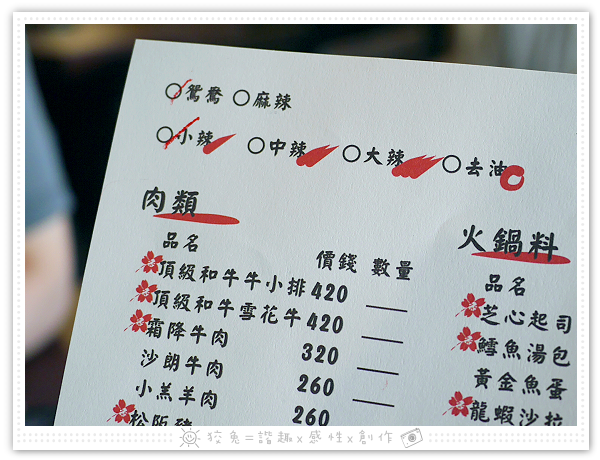 ○鴛鴦 ○麻辣
○小辣 ○中辣 ○大辣 ○去油
肉類
品名 價錢 數量
頂級和牛牛小排 420
頂級和牛雪花牛 420
霜降牛肉 320
沙朗牛肉 260
小羔羊肉 260
松阪豬
火鍋料
品名
芝心起司
鱈魚湯包
黃金魚蛋
龍蝦沙拉
狡兔=諧趣x感性x創作